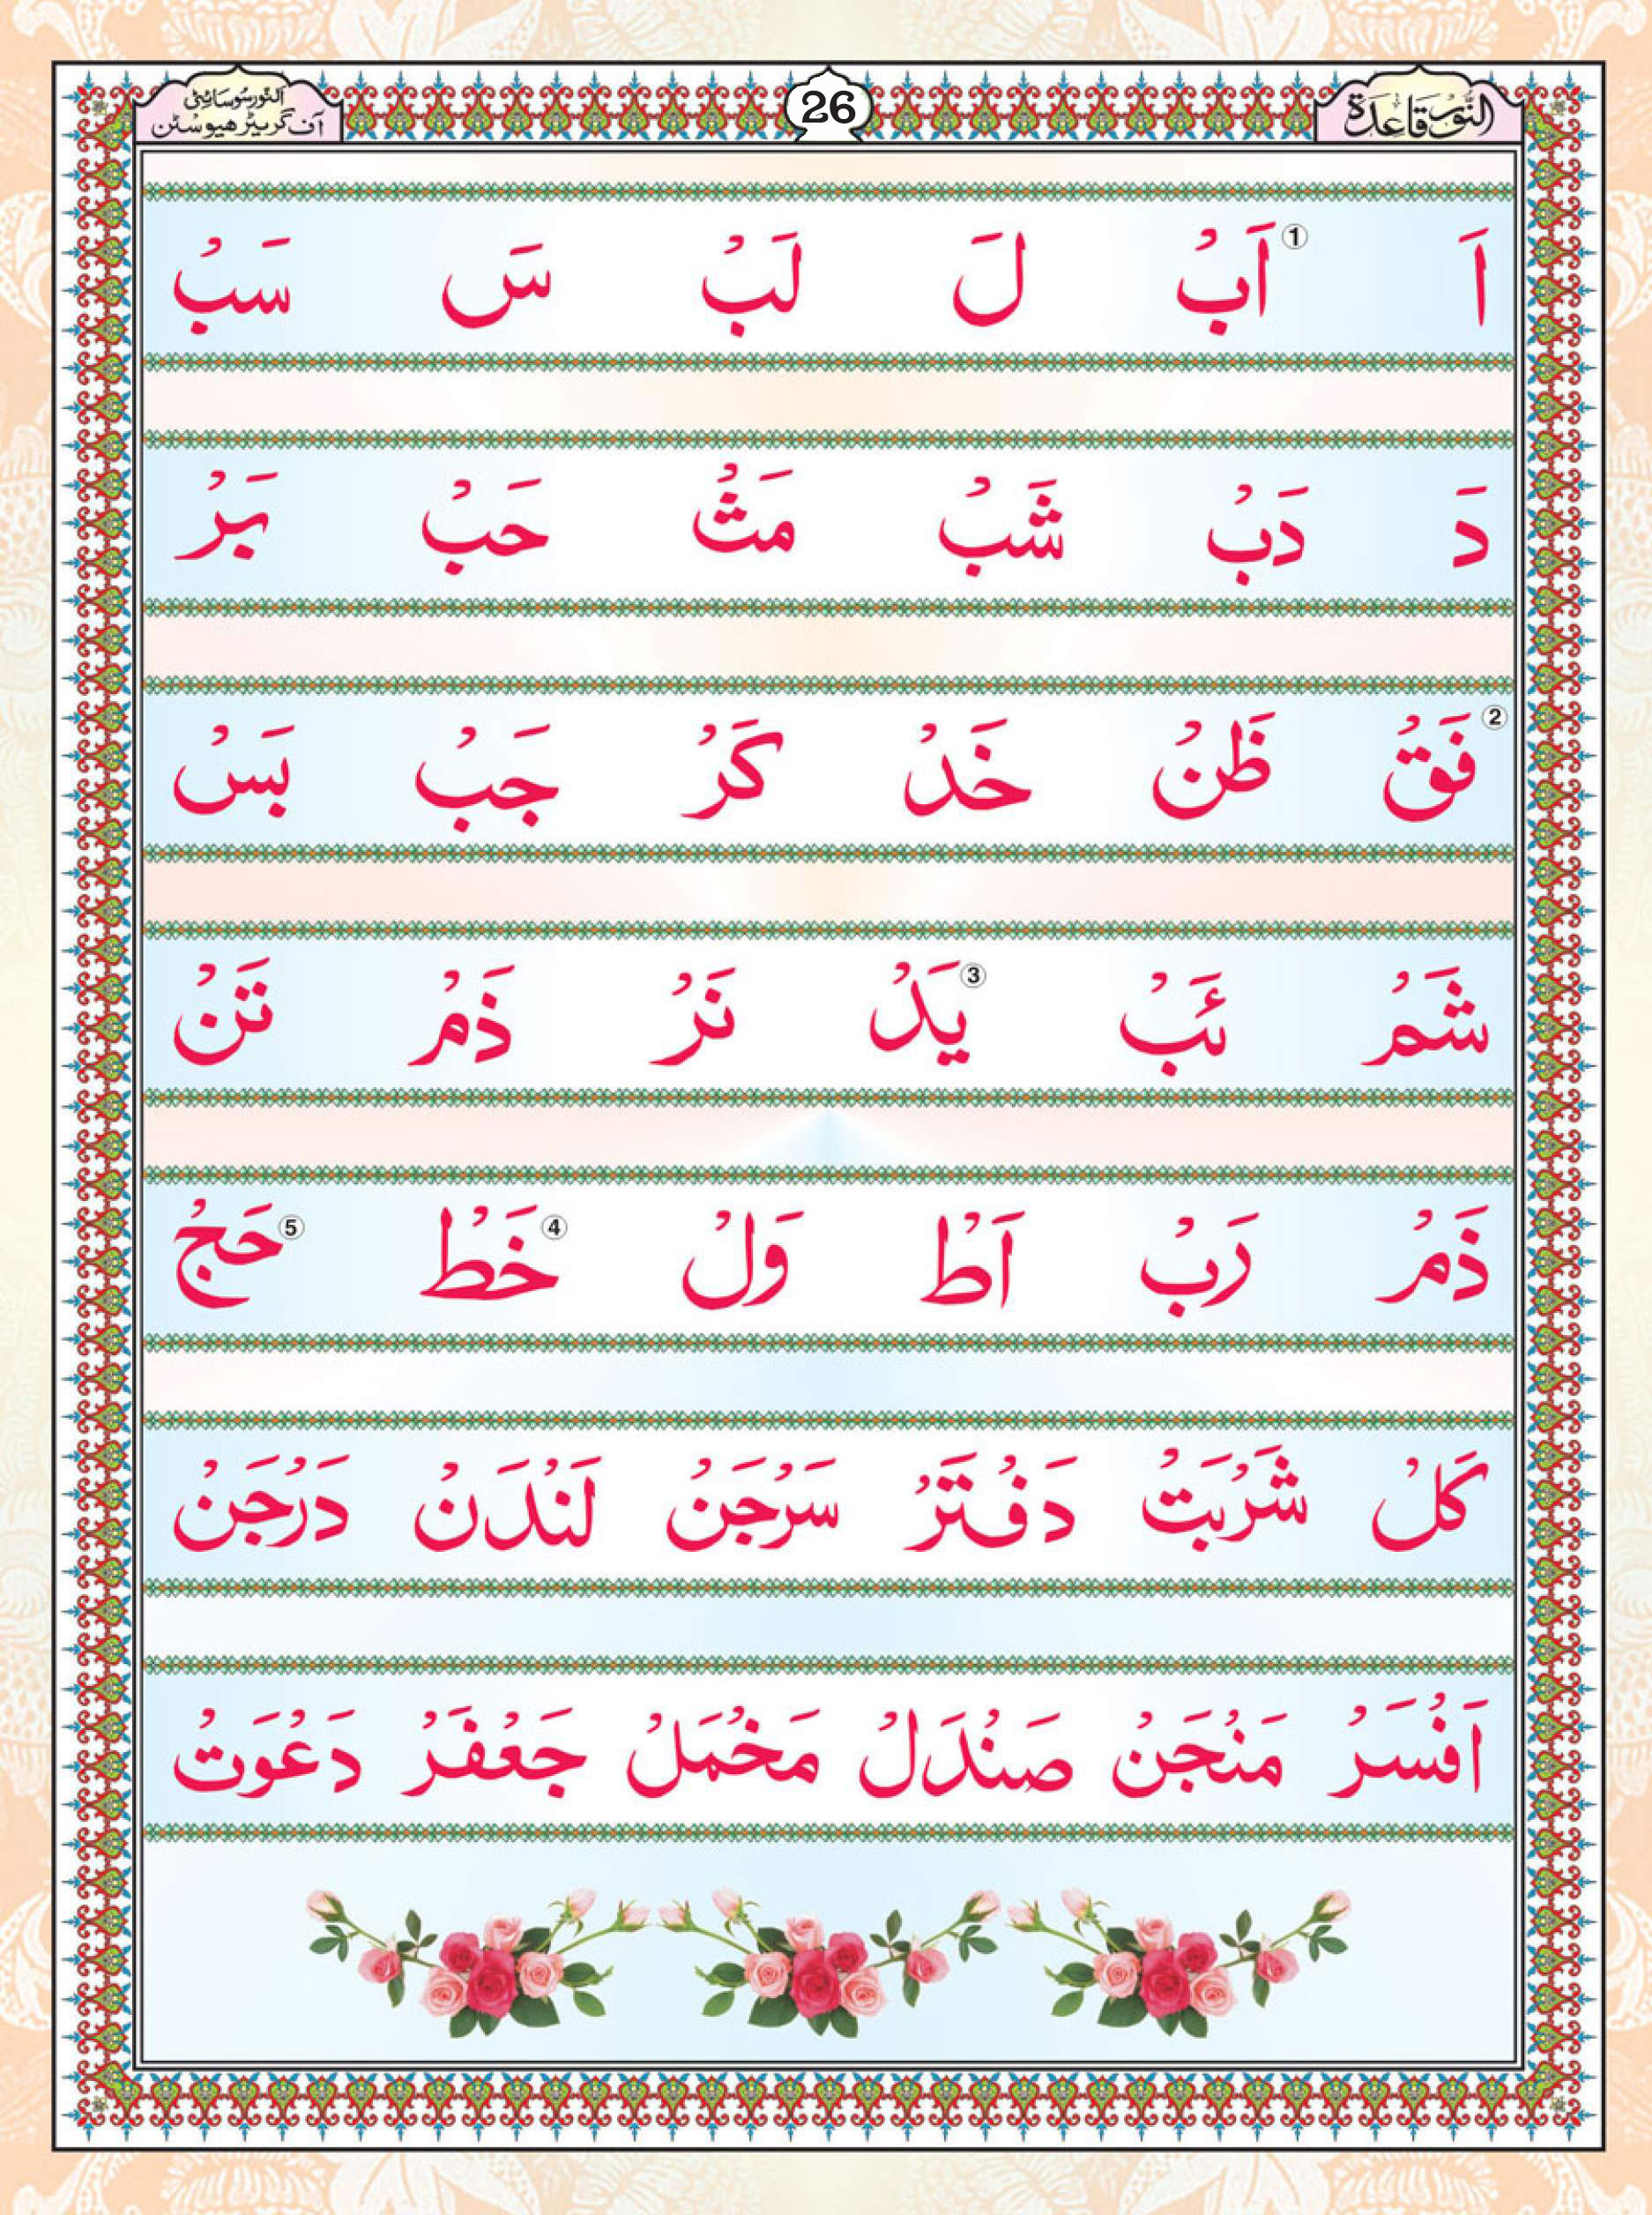 النُّور قَاعِدَة
26
اَلنّور سُوسَائِٹی
آف گریٹر ھیوسٹن
اَ اَبْ ① لَ لَبْ سَ سَبْ
دَ دَبْ شَبْ مَثْ حَبْ بَرْ
② فَقْ ظَنْ خَدْ كَرْ جَبْ بَسْ
شَمْ ئَبْ ③ يَدْ نَرْ ذَمْ تَنْ
ذَمْ رَبْ اَطْ وَلْ ④ خَطْ ⑤ حَجْ
كَلْ شَرْبَتْ دَفْتَرْ سَرْجَنْ لَنْدَنْ دَرْجَنْ
اَفْسَرْ مَنْجَنْ صَنْدَلْ مَخْمَلْ جَعْفَرْ دَعْوَتْ